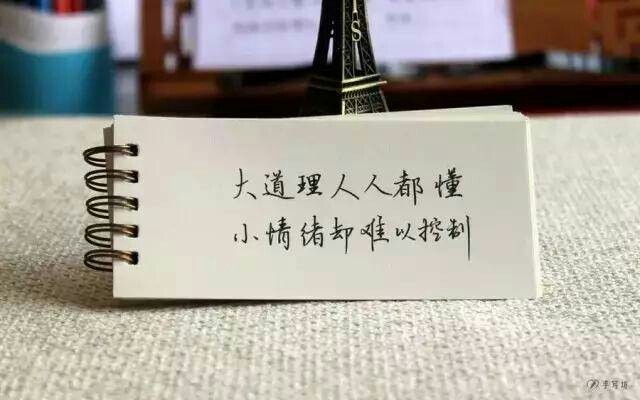 大道理人人都懂
小情绪却难以控制
手写坊